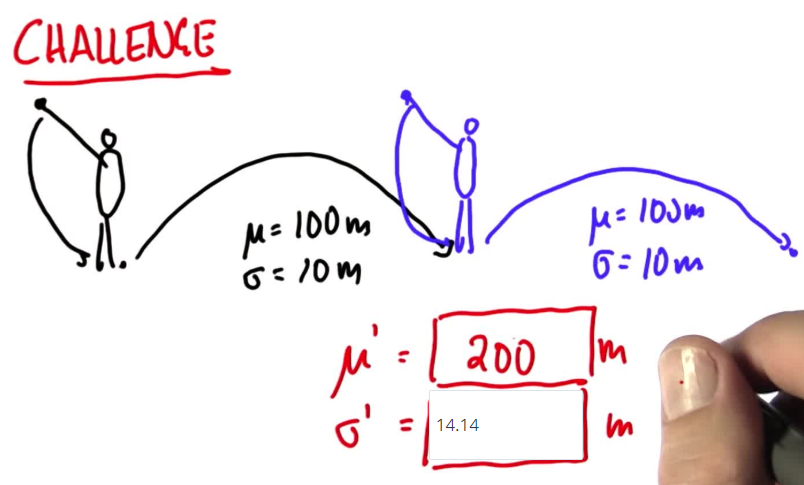 CHALLENGE
μ = 100 m
σ = 10 m
μ = 100 m
σ = 10 m
μ' = 200 m
σ' = 14.14 m